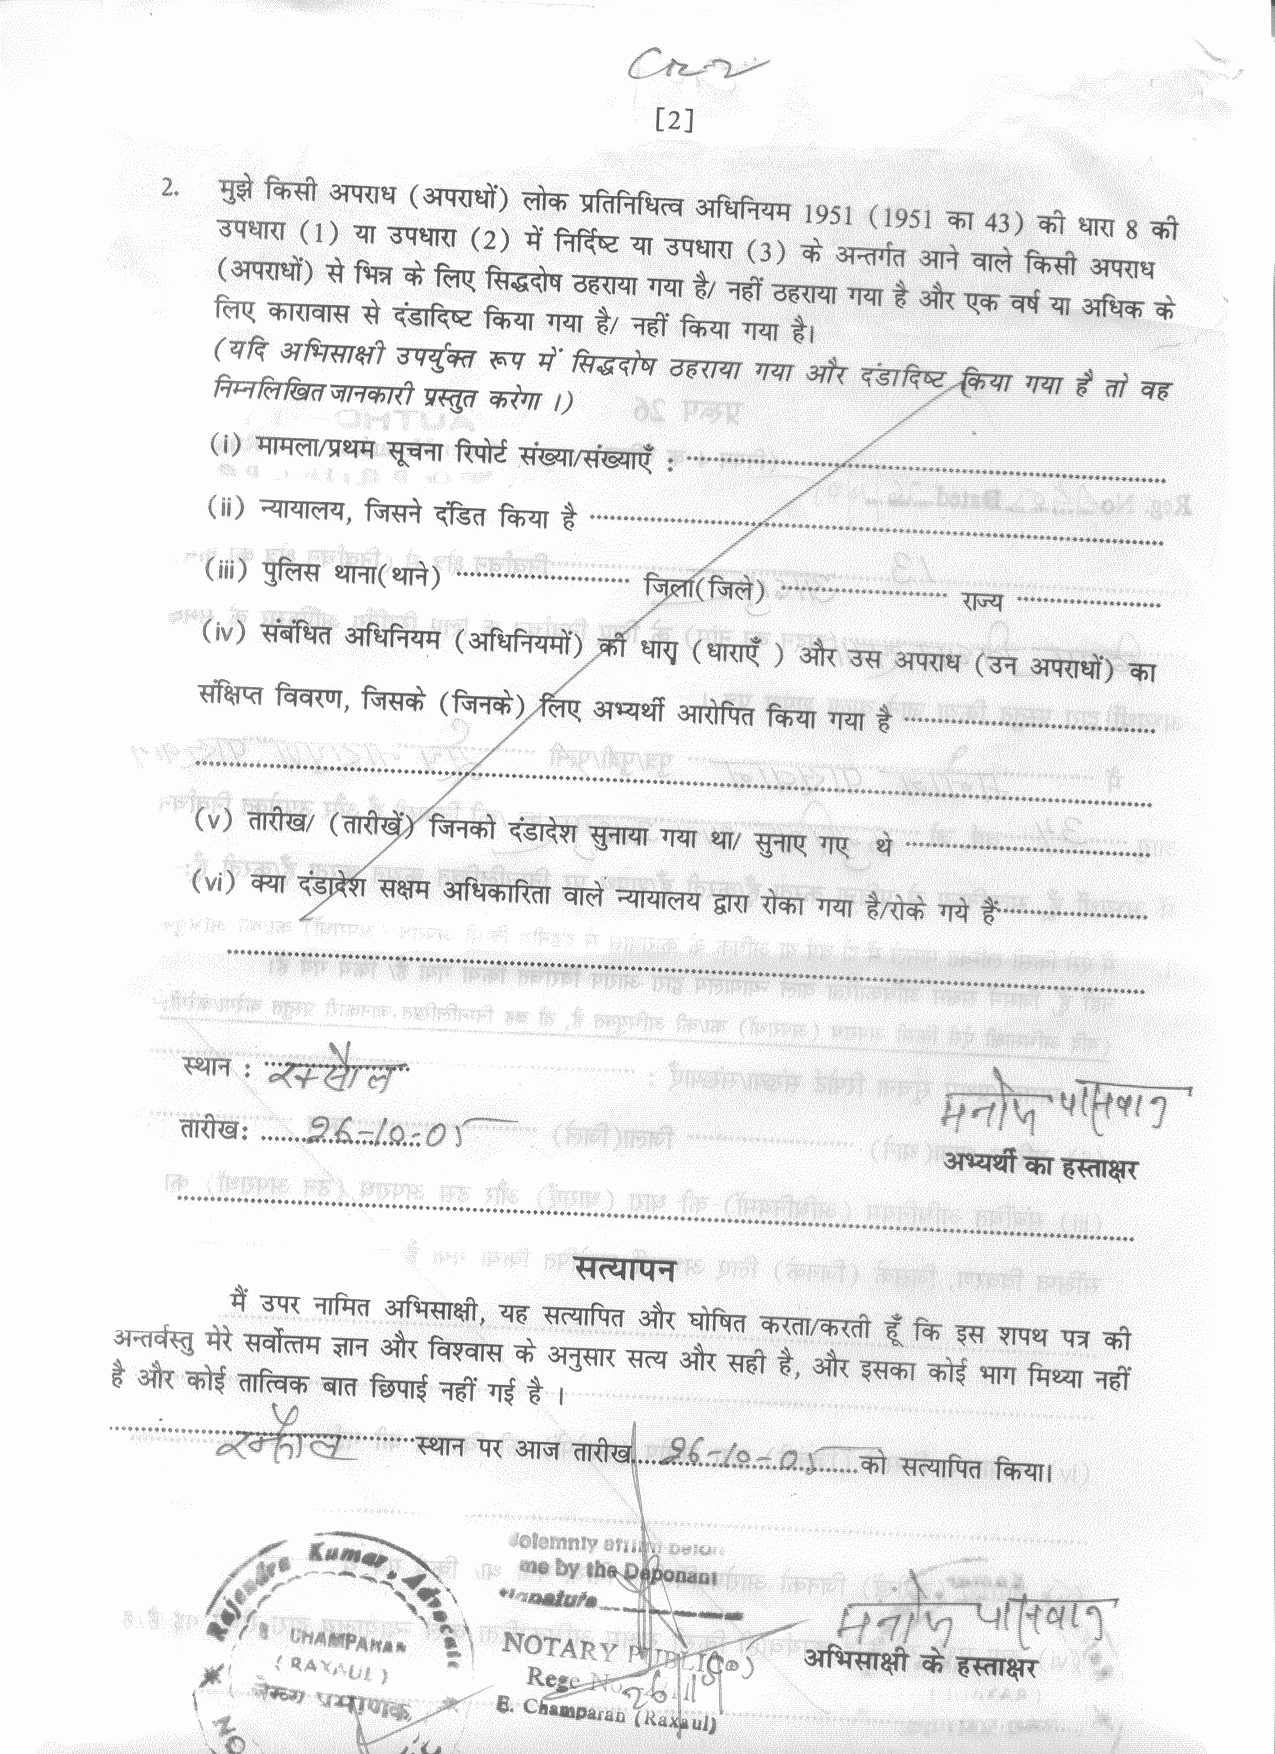 [2]
2. मुझे किसी अपराध (अपराधों) लोक प्रतिनिधित्व अधिनियम 1951 (1951 का 43) की धारा 8 की
उपधारा (1) या उपधारा (2) में निर्दिष्ट या उपधारा (3) के अन्तर्गत आने वाले किसी अपराध
(अपराधों) से भिन्न के लिए सिद्धदोष ठहराया गया है/ नहीं ठहराया गया है और एक वर्ष या अधिक के
लिए कारावास से दंडादिष्ट किया गया है/ नहीं किया गया है।
(यदि अभिसाक्षी उपर्युक्त रूप में सिद्धदोष ठहराया गया और दंडादिष्ट किया गया है तो वह
निम्नलिखित जानकारी प्रस्तुत करेगा ।)
(i) मामला/प्रथम सूचना रिपोर्ट संख्या/संख्याएँ :
(ii) न्यायालय, जिसने दंडित किया है
(iii) पुलिस थाना(थाने) जिला(जिले) राज्य
(iv) संबंधित अधिनियम (अधिनियमों) की धारा (धाराएँ ) और उस अपराध (उन अपराधों) का
संक्षिप्त विवरण, जिसके (जिनके) लिए अभ्यर्थी आरोपित किया गया है
(v) तारीख/ (तारीखें) जिनको दंडादेश सुनाया गया था/ सुनाए गए थे
(vi) क्या दंडादेश सक्षम अधिकारिता वाले न्यायालय द्वारा रोका गया है/रोके गये हैं
स्थान : रक्सौल
तारीख: 26-10-05
मनोज पासवान
अभ्यर्थी का हस्ताक्षर
सत्यापन
मैं उपर नामित अभिसाक्षी, यह सत्यापित और घोषित करता/करती हूँ कि इस शपथ पत्र की
अन्तर्वस्तु मेरे सर्वोत्तम ज्ञान और विश्वास के अनुसार सत्य और सही है, और इसका कोई भाग मिथ्या नहीं
है और कोई तात्विक बात छिपाई नहीं गई है ।
रक्सौल स्थान पर आज तारीख 26-10-05 को सत्यापित किया।
Solemnly affirm before
me by the Deponant
Signature
NOTARY PUBLIC
Rege No.
E. Champaran (Raxaul)
Rajendra Kumar, Advocate
E CHAMPARAN
(RAXAUL)
मनोज पासवान
अभिसाक्षी के हस्ताक्षर